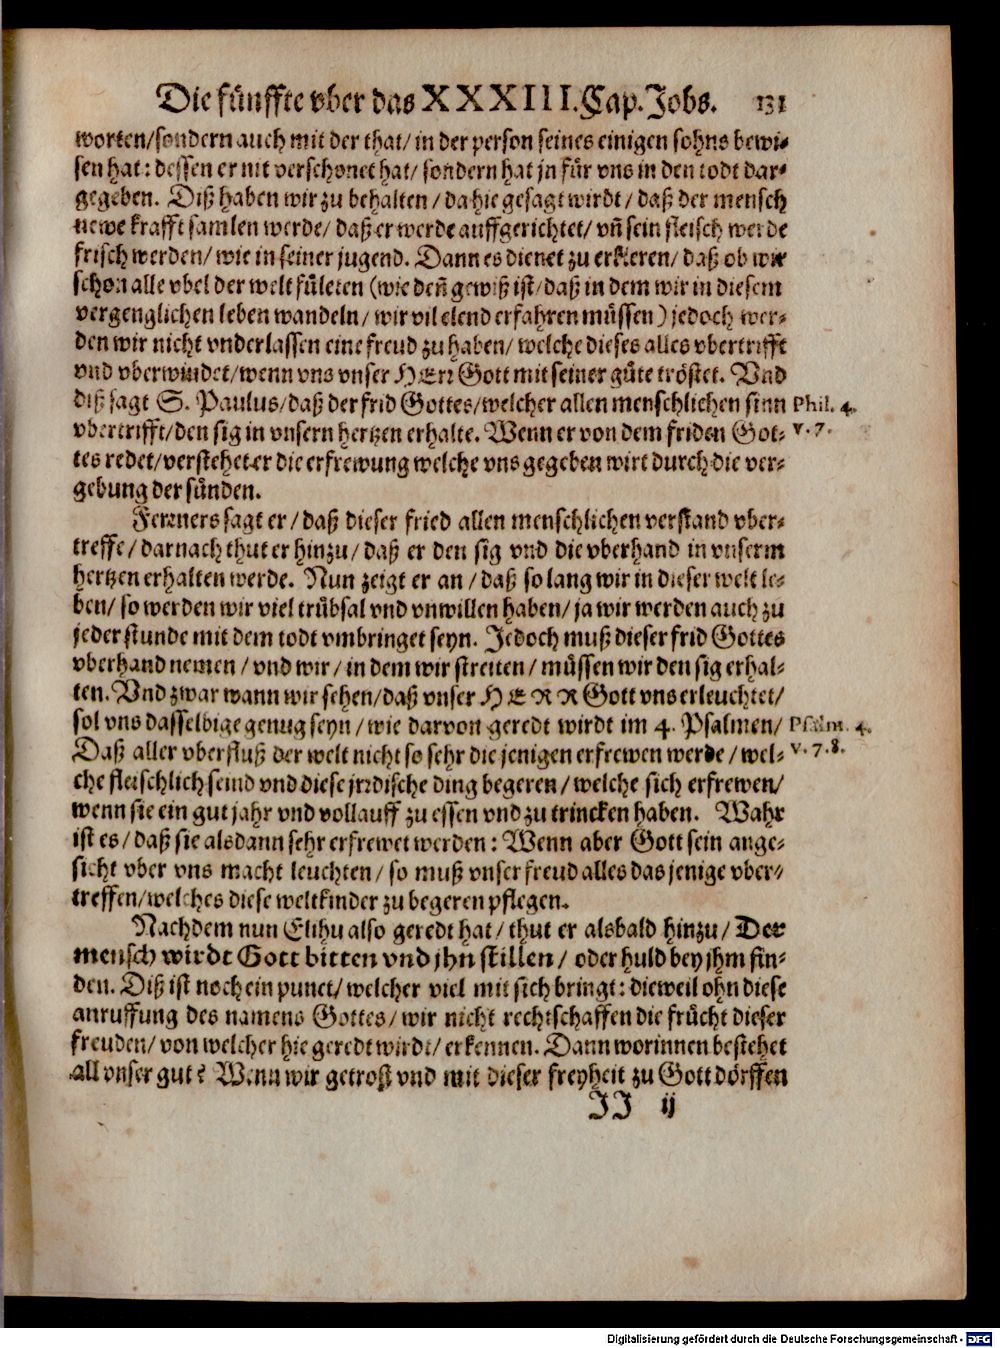 Die fünffte vber das XXXIII. Cap. Jobs. 131
worten/sondern auch mit der that/ in der person seines einigen sohns bewi-
sen hat: dessen er nit verschonet hat/ sondern hat jn für vns in den todt dar-
gegeben. Diß haben wir zu behalten / da hie gesagt wirdt / daß der mensch
newe krafft samlen werde/ daß er werde auffgerichtet/ vñ sein fleisch werde
frisch werden/ wie in seiner jugend. Dann es dienet zu erkleren/ daß ob wir
schon alle vbel der welt fületen (wie deñ gewiß ist/ daß in dem wir in diesem
vergenglichen leben wandeln/ wir vil elend erfahren müssen) jedoch wer-
den wir nicht vnderlassen eine freud zu haben/ welche dieses alles vbertrifft
vnd vberwindet/wenn vns vnser HErr Gott mit seiner güte tröstet. Vnd
diß sagt S. Paulus/daß der frid Gottes/welcher allen menschlichen sinn Phil. 4.
vbertrifft/den sig in vnsern hertzen erhalte. Wenn er von dem friden Got- v. 7.
tes redet/verstehet er die erfrewung welche vns gegeben wirt durch die ver-
gebung der sünden.
Ferrners sagt er / daß dieser fried allen menschlichen verstand vber-
treffe / darnach thut er hinzu / daß er den sig vnd die vberhand in vnserm
hertzen erhalten werde. Nun zeigt er an / daß so lang wir in dieser welt le-
ben/ so werden wir viel trübsal vnd vnwillen haben/ ja wir werden auch zu
jeder stunde mit dem todt vmbringet seyn. Jedoch muß dieser frid Gottes
vberhand nemen / vnd wir / in dem wir streiten / müssen wir den sig erhal-
ten. Vnd zwar wann wir sehen/daß vnser HERR Gott vns erleuchtet/
sol vns dasselbige genug seyn / wie darvon geredt wirdt im 4. Psalmen/ Psalm. 4.
Daß aller vberfluß der welt nicht so sehr die jenigen erfrewen werde / wel- v. 7. 8.
che fleischlich seind vnd diese jrrdische ding begeren / welche sich erfrewen/
wenn sie ein gut jahr vnd vollauff zu essen vnd zu trincken haben. Wahr
ist es / daß sie alsdann sehr erfrewet werden: Wenn aber Gott sein ange-
sicht vber vns macht leuchten / so muß vnser freud alles das jenige vber-
treffen/welches diese weltkinder zu begeren pflegen.
Nachdem nun Elihu also geredt hat/ thut er alsbald hinzu/ Der
mensch wirdt Gott bitten vnd jhn stillen/ oder huld bey jhm fin-
den. Diß ist noch ein punct/ welcher viel mit sich bringt: dieweil ohn diese
anruffung des namens Gottes/ wir nicht rechtschaffen die frücht dieser
freuden/ von welcher hie geredt wirdt/ erkennen. Dann worinnen bestehet
all vnser gut? Wenn wir getrost vnd mit dieser freyheit zu Gott dörffen
JJ ij
Digitalisierung gefördert durch die Deutsche Forschungsgemeinschaft - DFG